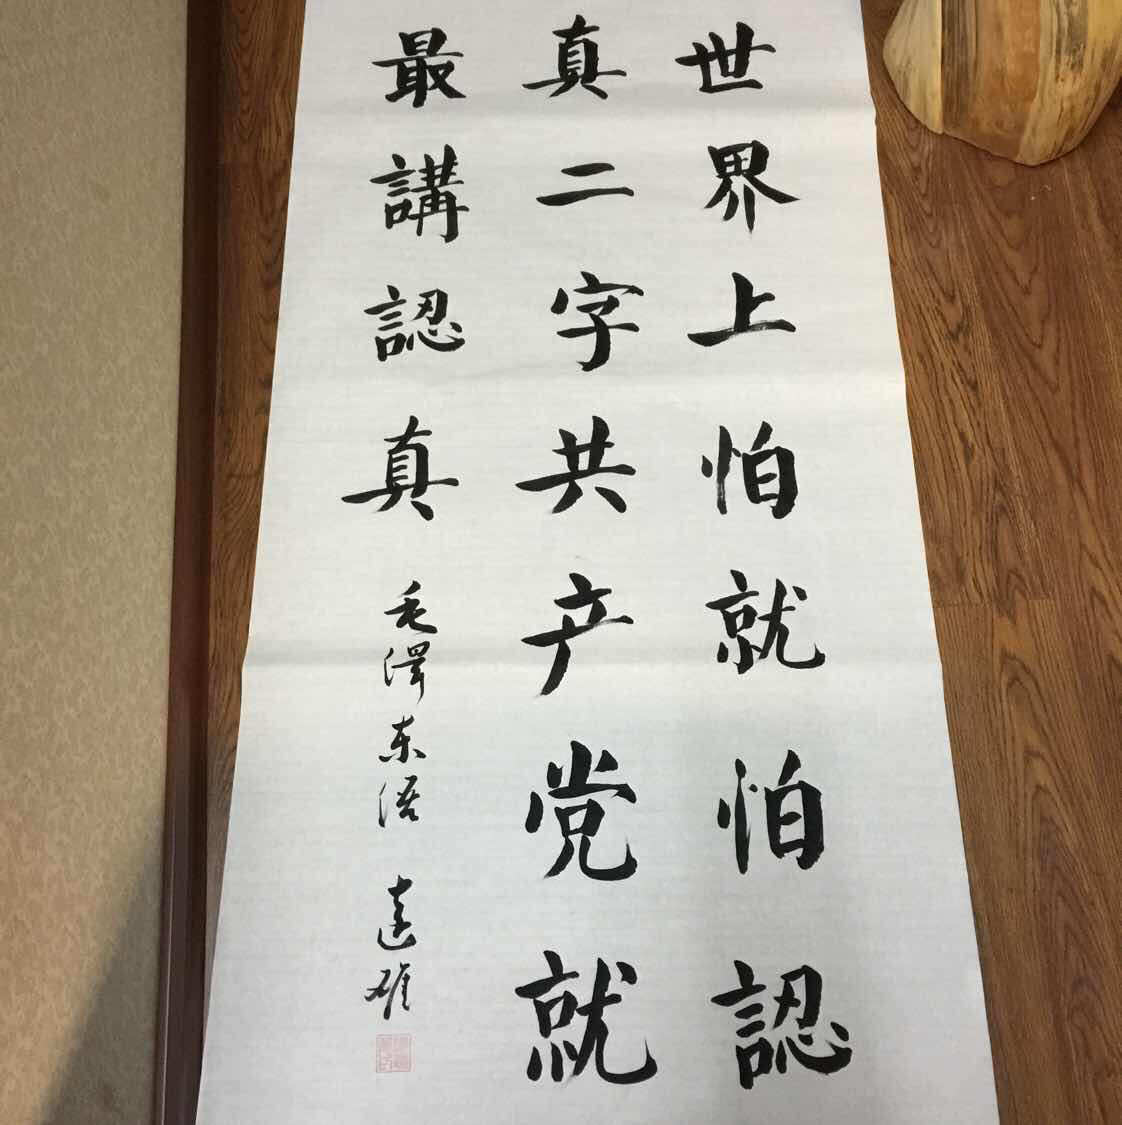 世界上怕就怕認
真二字共产党就
最講認真
毛澤东语
達雄